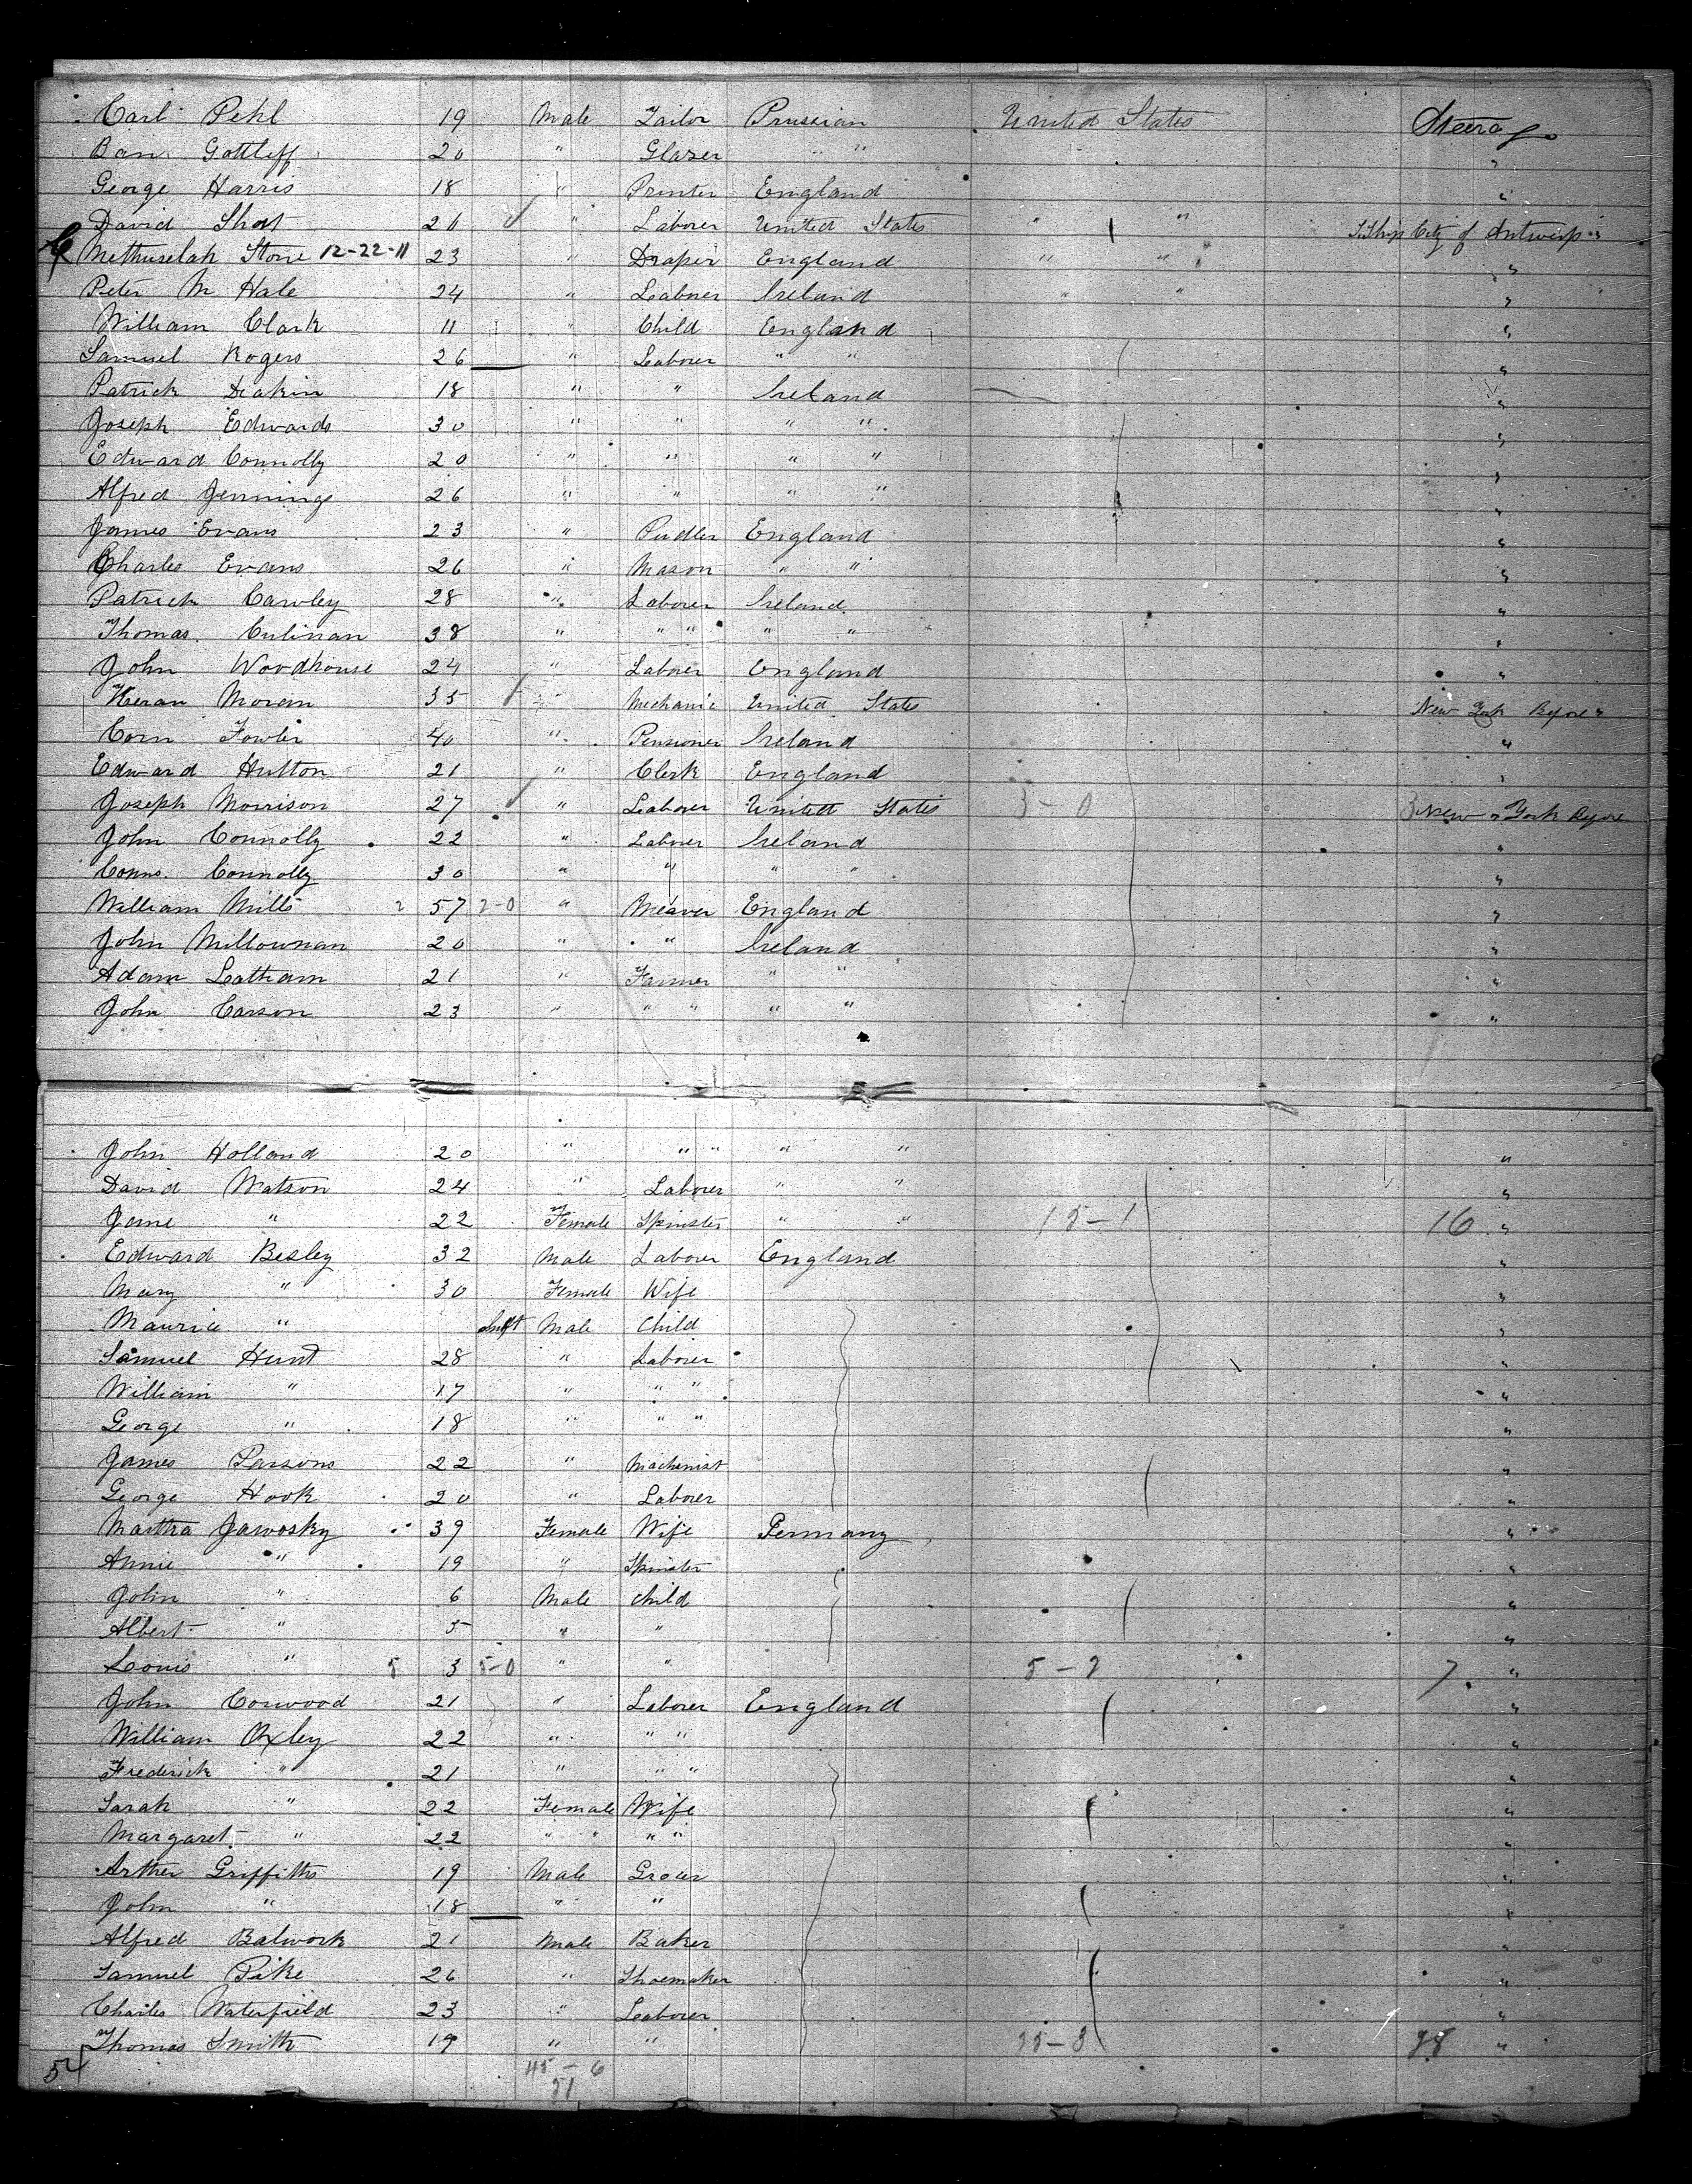 Carl Pehl 19 Male Tailor Prussian United States Steerage
Ban Gottleff 20 " Glaser " " "
George Harris 18 " Printer England "
David Short 26 " Laborer United States " " S. Ship City of Antwerp "
Methuselah Stone 12-22-11 23 " Draper England " " "
Peter M Hale 24 " Laborer Ireland " " "
William Clark 11 " Child England "
Samuel Rogers 26 " Laborer " " "
Patrick Deakin 18 " " Ireland "
Joseph Edwards 30 " " " " "
Edward Connolly 20 " " " " "
Alfred Jennings 26 " " " " "
James Evans 23 " Pudler England "
Charles Evans 26 " Mason " " "
Patrick Cawley 28 " Laborer Ireland "
Thomas Culinan 38 " " " " " "
John Woodhouse 24 " Laborer England "
Kieran Moran 35 " Mechanic United States New York Before "
Corn Fowler 40 " Pensioner Ireland "
Edward Hutton 21 " Clerk England "
Joseph Morrison 27 " Laborer United States 3-0 3 New York Before
John Connolly 22 " Laborer Ireland "
Conns. Connolly 30 " " " " "
William Mills 2 57 2-0 " Weaver England "
John Millownan 20 " " Ireland "
Adam Latham 21 " Farmer " " "
John Carson 23 " " " " " "
John Holland 20 " " " " " "
David Watson 24 " Laborer " " "
Jane " 22 Female Spinster " " 15-1 16 "
Edward Besley 32 Male Laborer England "
Mary " 30 Female Wife "
Maurice " Inft Male Child "
Samuel Hunt 28 " Laborer "
William " 17 " " " "
George " 18 " " " "
James Parsons 22 " Machinist "
George Hook 20 " Laborer "
Martha Jawosky 39 Female Wife Germany "
Annie " 19 " Spinster "
John " 6 Male Child "
Albert " 5 " " "
Louis " 5 3 5-0 " " 5-2 7 "
John Corwood 21 " Laborer England "
William Oxley 22 " " " "
Frederick " 21 " " " "
Sarah " 22 Female Wife "
Margaret " 22 " " " " "
Arther Griffiths 19 Male Grocer "
John " 18 " " "
Alfred Balwork 21 Male Baker "
Samuel Pike 26 " Shoemaker "
Charles Waterfield 23 " Laborer "
Thomas Smith 19 " " 25-3 28 "
54 45-6
51